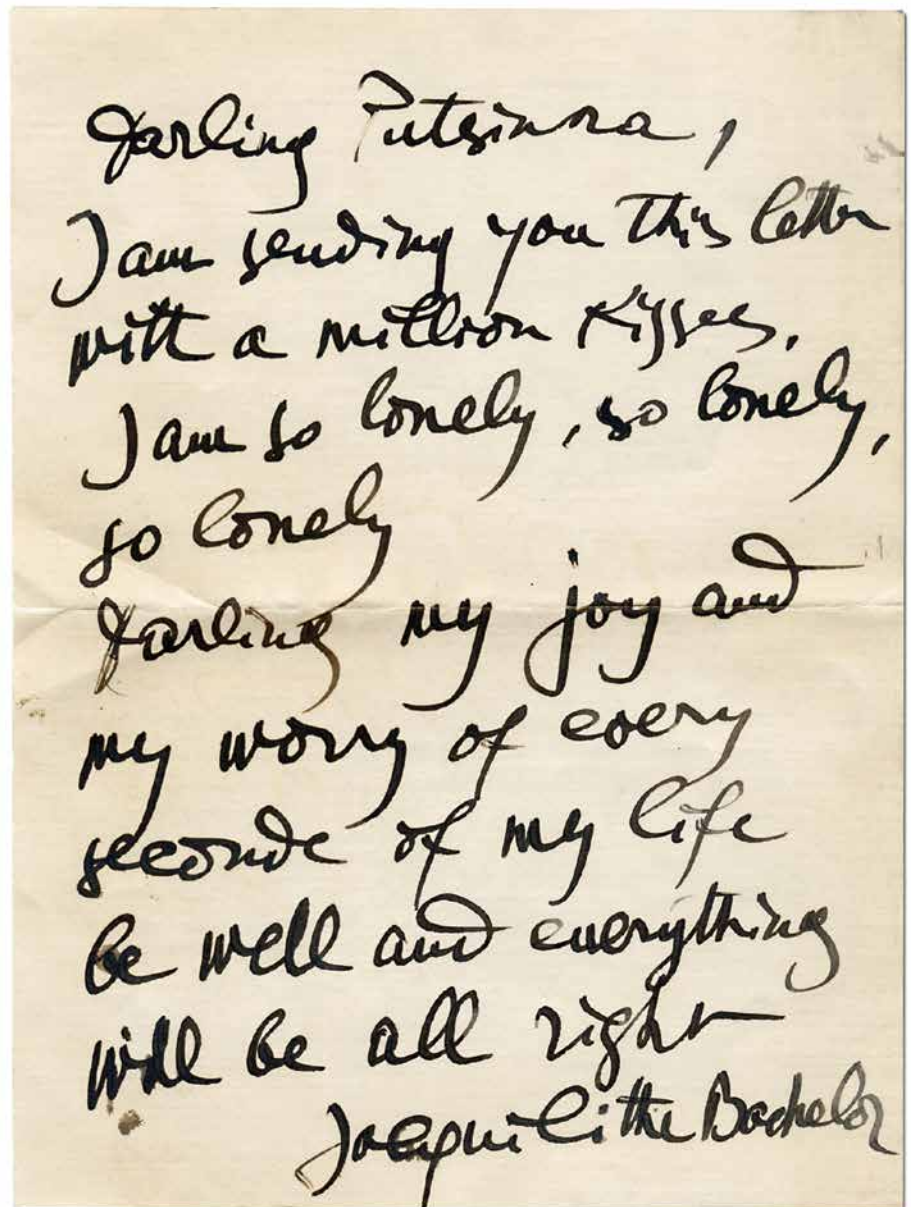 Darling Putsinna,
I am sending you this letter
with a million Kisses.
I am so lonely, so lonely,
so lonely
Darling my joy and
my worry of every
seconde of my life
be well and everything
will be all right
the Bachelor